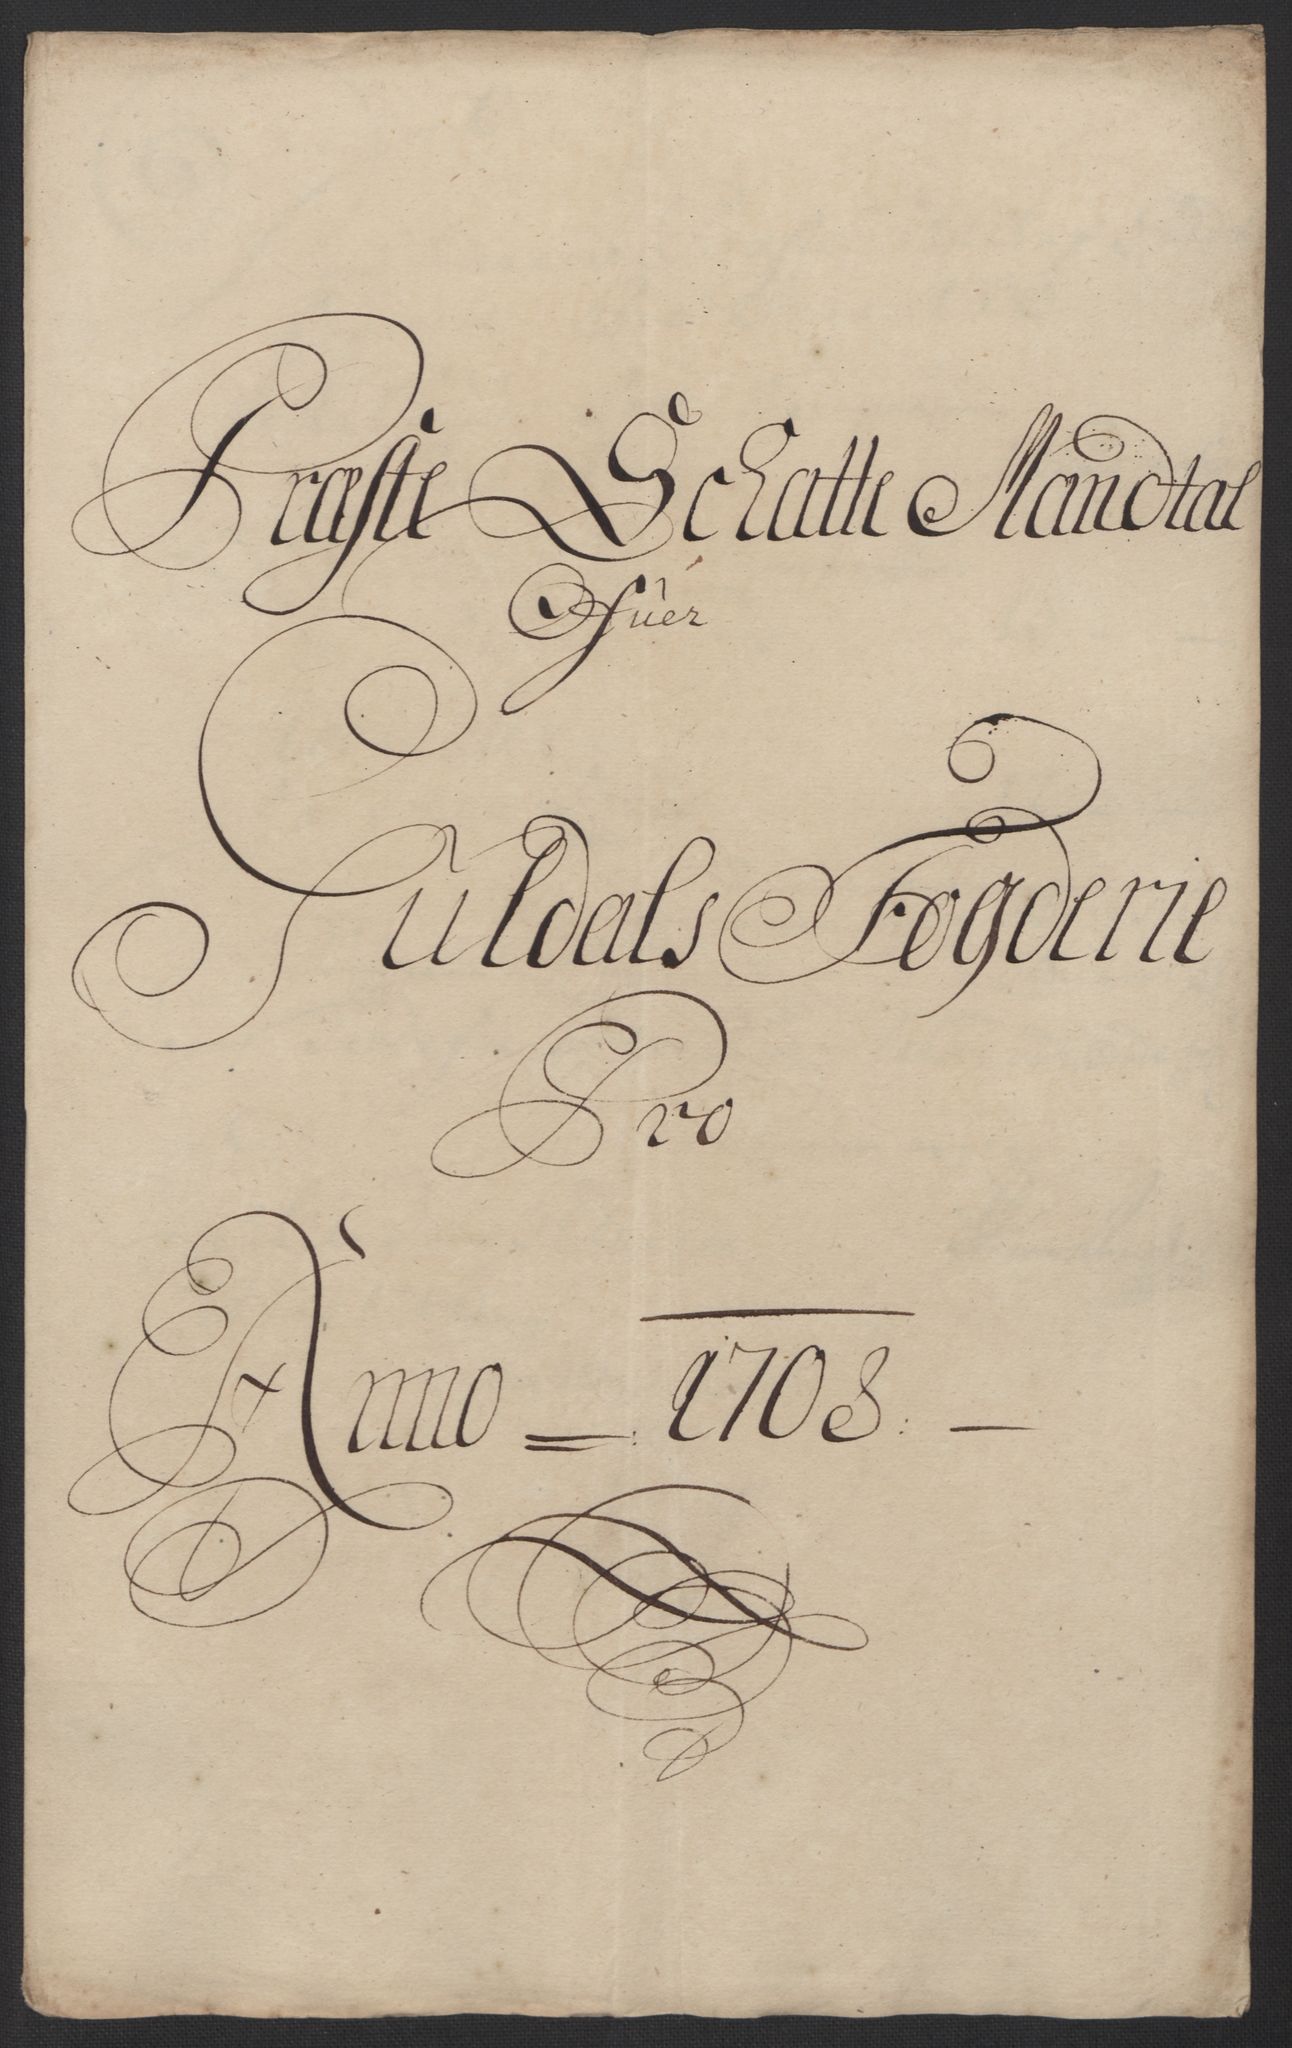 Præste Schatte Mandtal
Ofuer
Guldals Fogderie
Pro
Anno = 1708. –